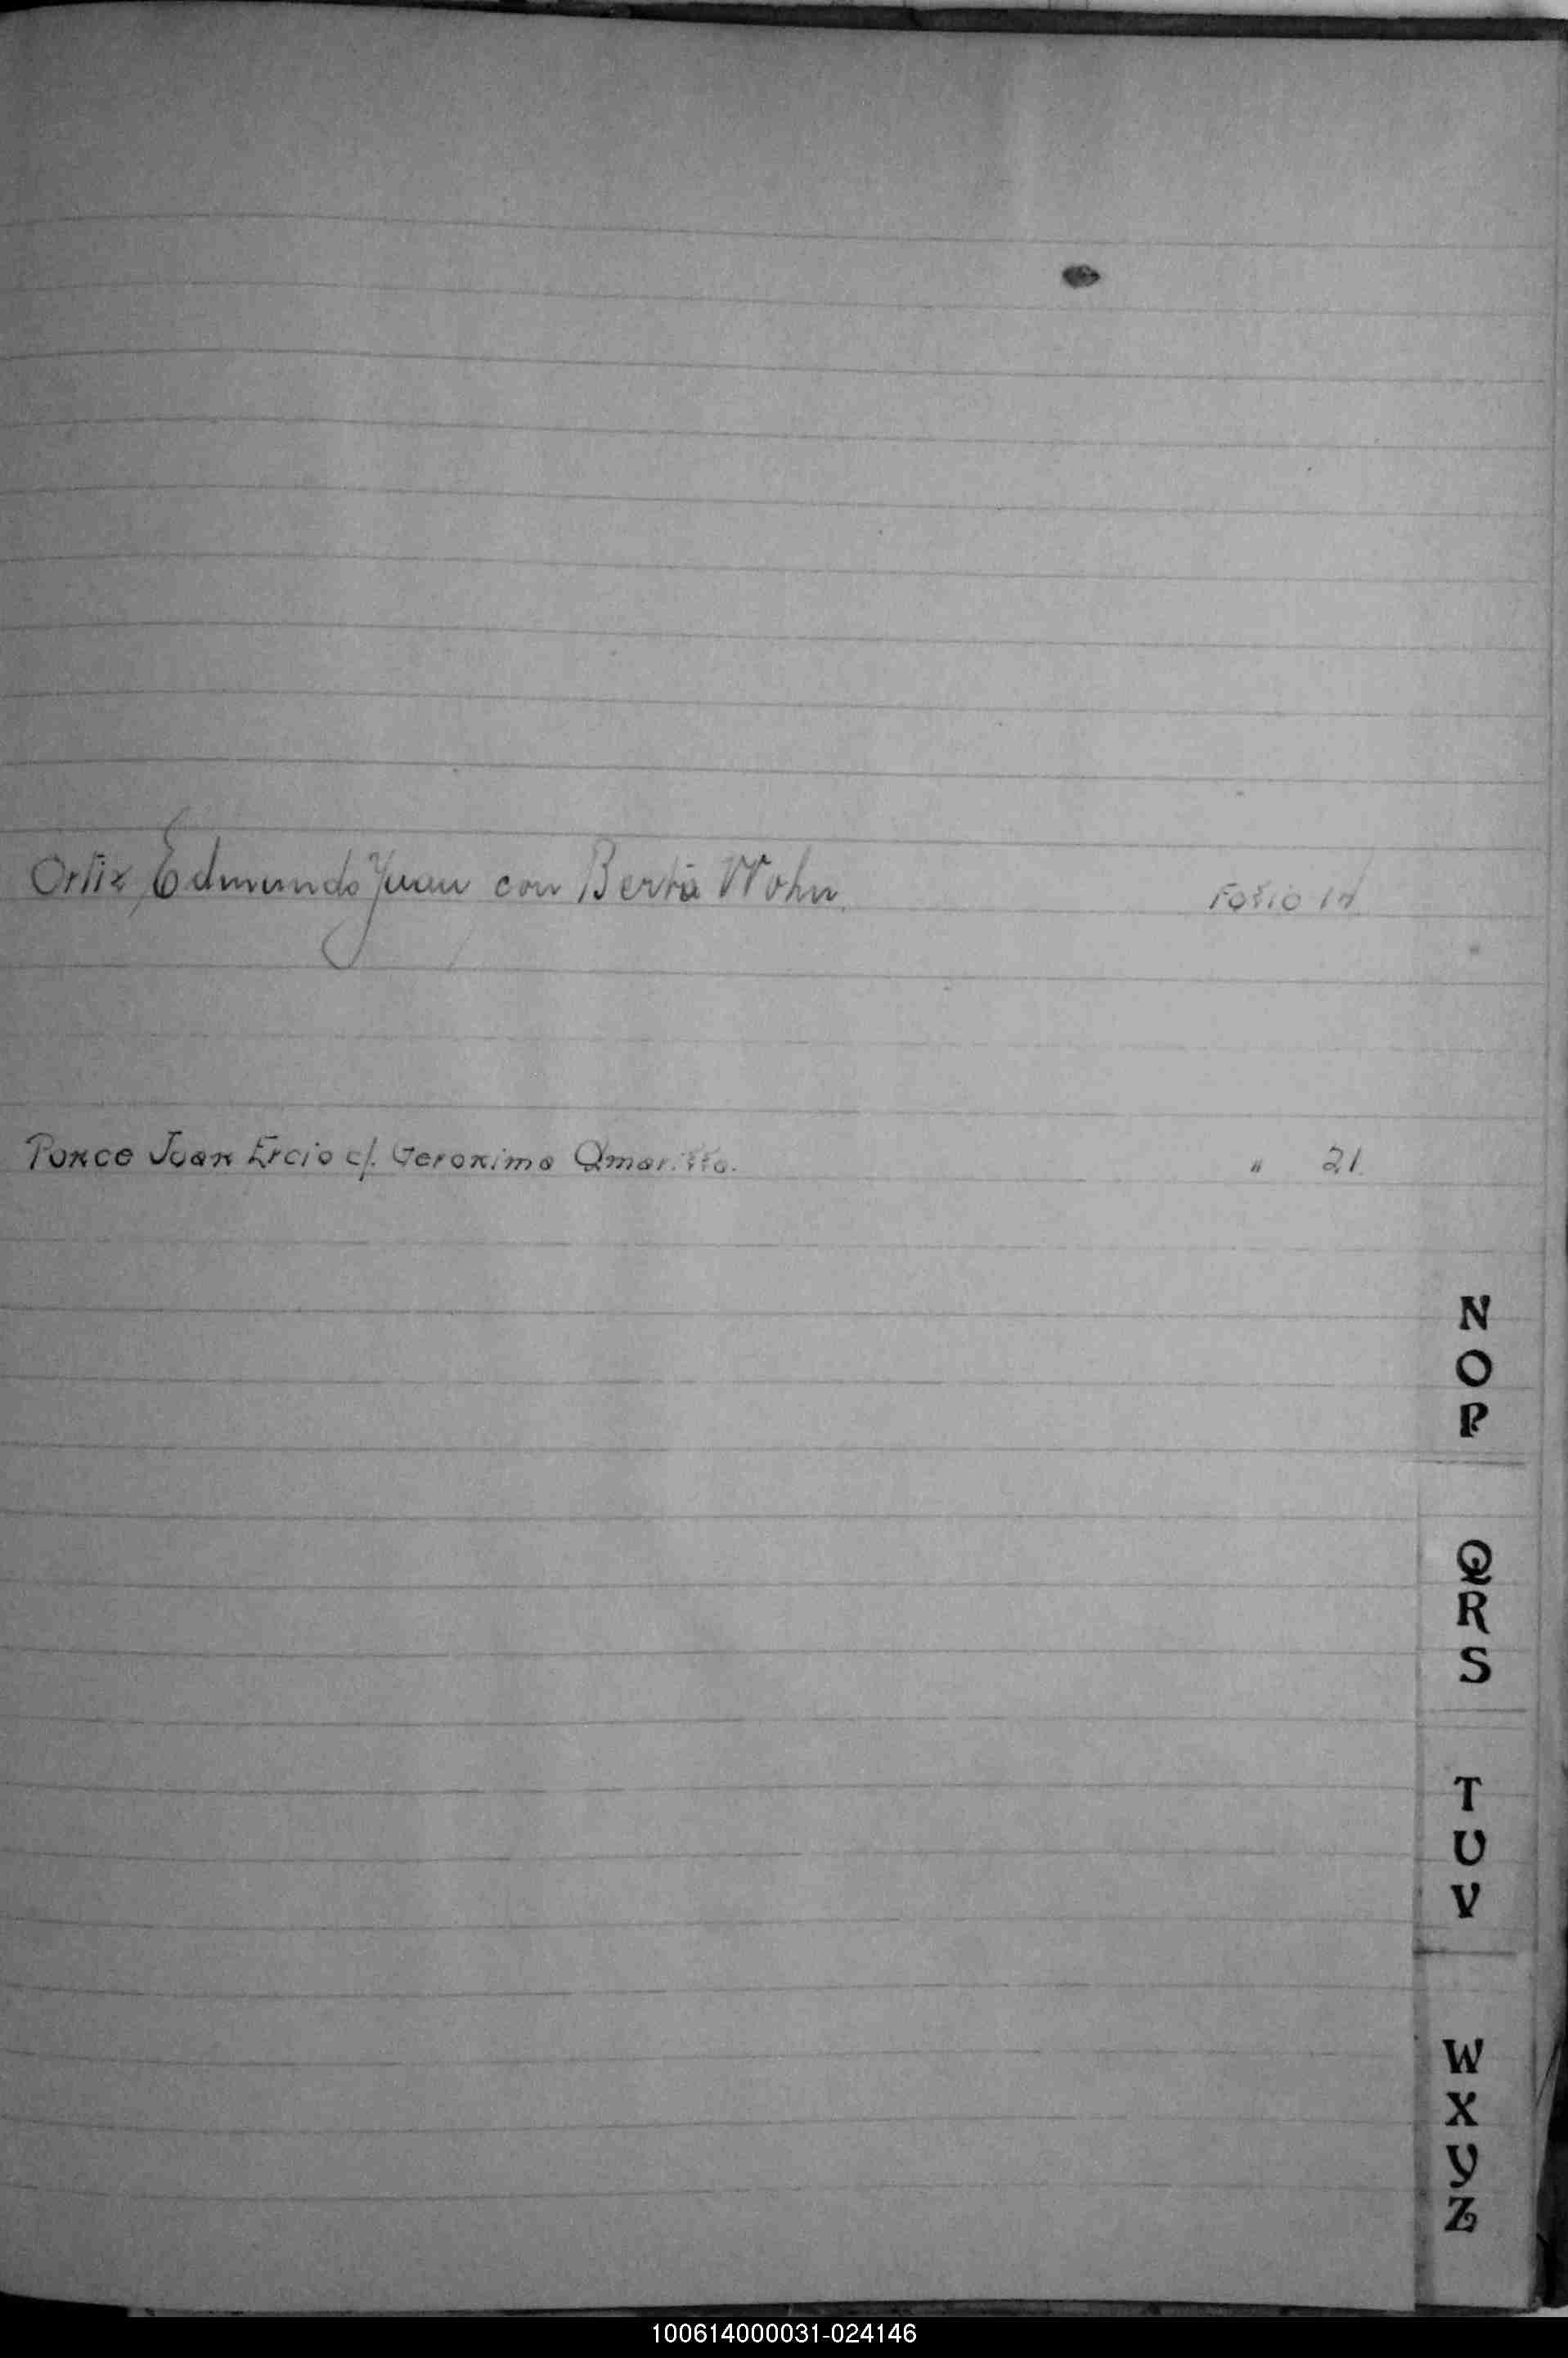 Ortiz, Edmundo Juan con Berta Wohn. Folio
Ponce Juan Ercio c/. Geronima Amarilla. " 21.
N
O
P
Q
R
S
T
U
V
W
X
Y
Z
100614000031-024146